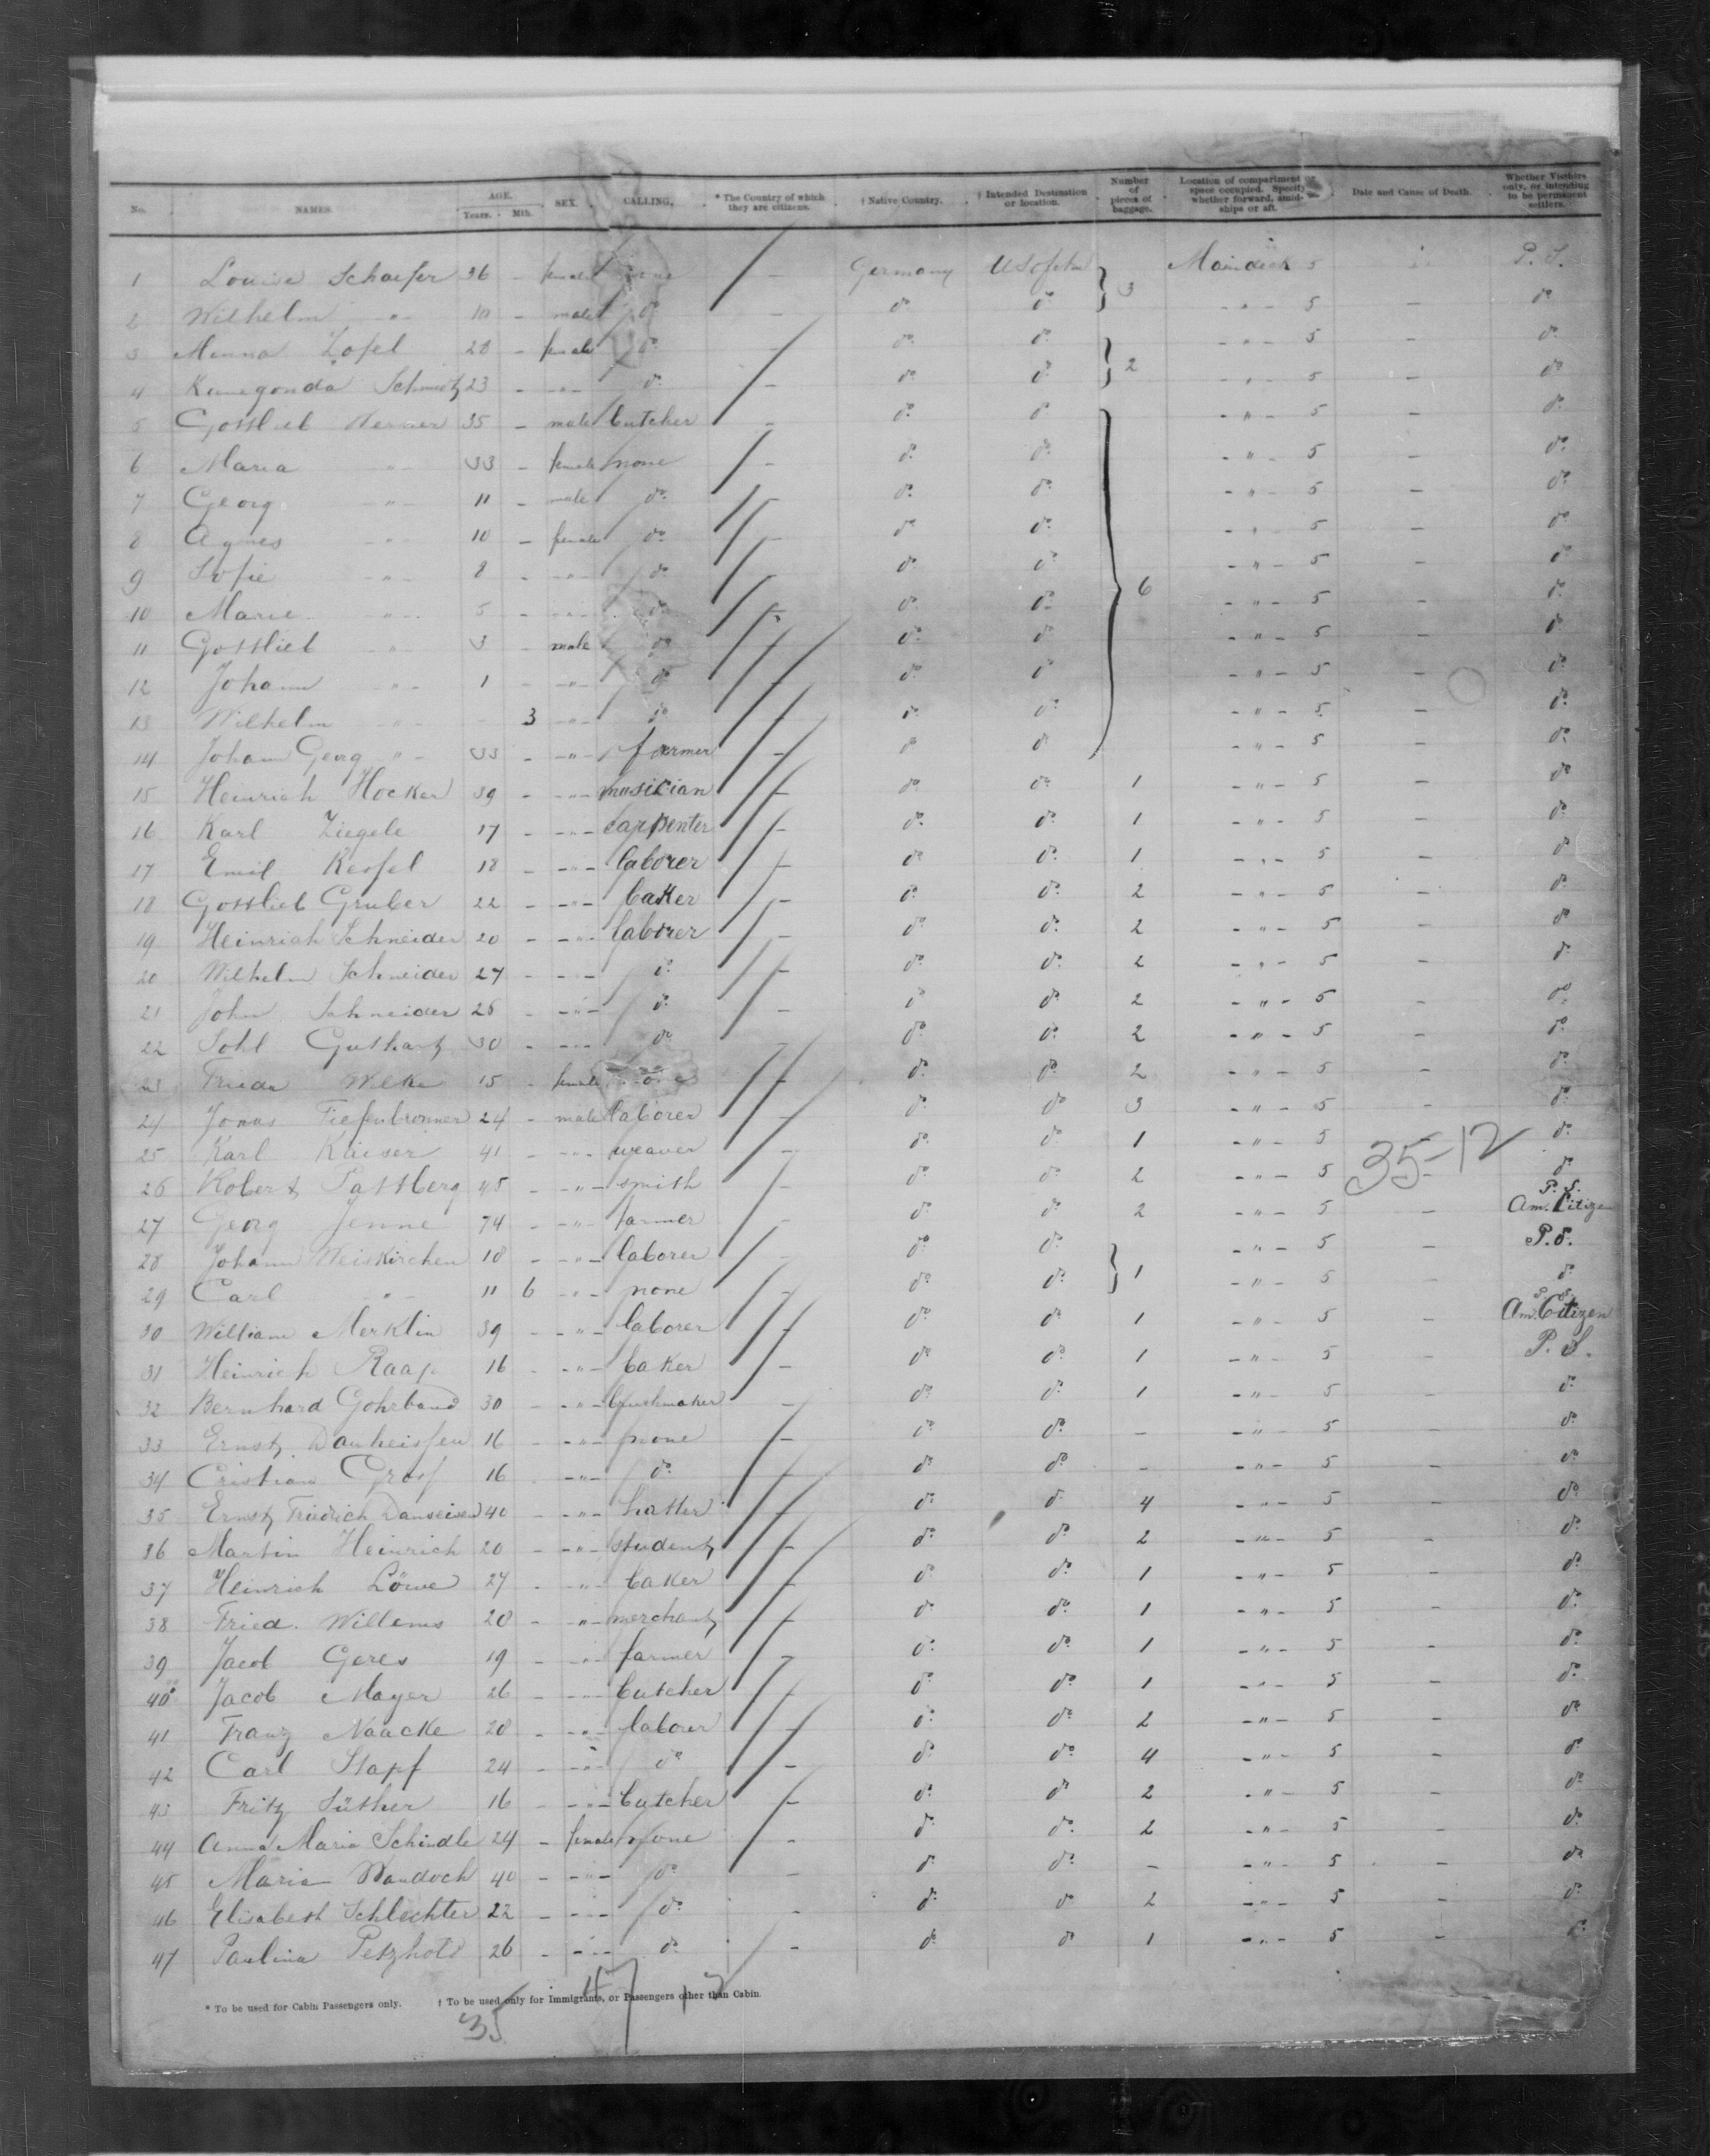 No. NAMES. AGE. Years. Mth. SEX. CALLING. * The Country of which they are citizens. † Native Country. † Intended Destination or location. Number of pieces of baggage. Location of compartment or space occupied. Specify whether forward, amidships or aft. Date and Cause of Death. Whether Visitors only, or intending to be permanent settlers.
1 Louise Schaefer 36 - female none - Germany U S of Am 3 Maindeck 5 P. S.
2 Wilhelm -"- 10 - male do - do do -"- 5 - do
3 Minna Zofel 28 - female do - do do 2 -"- 5 - do
4 Kunegonda Schmitz 23 - -"- do - do do -"- 5 - do
5 Gottlieb Werner 35 - male butcher - do do 6 -"- 5 - do
6 Maria -"- 33 - female none - do do -"- 5 - do
7 Georg -"- 11 - male do - do do -"- 5 - do
8 Agnes -"- 10 - female do - do do -"- 5 - do
9 Sofie -"- 8 - -"- do - do do -"- 5 - do
10 Marie -"- 5 - -"- do - do do -"- 5 - do
11 Gottlieb -"- 3 - male do - do do -"- 5 - do
12 Johann -"- 1 - -"- do - do do -"- 5 - do
13 Wilhelm -"- - 3 -"- do - do do -"- 5 - do
14 Johann Georg -"- 33 - -"- farmer - do do -"- 5 - do
15 Heinrich Hocker 39 - -"- musician - do do 1 -"- 5 - do
16 Karl Ziegele 17 - -"- carpenter - do do 1 -"- 5 - do
17 Emil Kessel 18 - -"- laborer - do do 1 -"- 5 - do
18 Gottlieb Gruber 22 - -"- baker - do do 2 -"- 5 - do
19 Heinrich Schneider 20 - -"- laborer - do do 2 -"- 5 - do
20 Wilhelm Schneider 27 - -"- do - do do 2 -"- 5 - do
21 John Schneider 26 - -"- do - do do 2 -"- 5 - do
22 Sohl 30 - -"- do - do do 2 -"- 5 - do
23 Frieda Wilke 15 - female none - do do 2 -"- 5 - do
24 Jonas Tiefenbronner 24 - male laborer - do do 3 -"- 5 - do
25 Karl Kaiser 41 - -"- weaver - do do 1 -"- 5 - do
35-12
26 Robert Pattberg 45 - -"- smith - do do 2 -"- 5 - do
27 Georg Jenne 74 - -"- farmer - do do 2 -"- 5 - P. S. Am. Citizen
28 Johann Weiskirchen 18 - -"- laborer - do do 1 -"- 5 - P. S.
29 Carl -"- 11 6 -"- none - do do -"- 5 - do
30 William Merklin 39 - -"- laborer - do do 1 -"- 5 - P. S. Am. Citizen
31 Heinrich Raap 16 - -"- baker - do do 1 -"- 5 P. S.
32 Bernhard Gohrband 30 - -"- brushmaker - do do 1 -"- 5 - do
33 Ernst Danheissen 16 - -"- none - do do - -"- 5 - do
34 Cristian Gross 16 - -"- do - do do - -"- 5 - do
35 Ernst Friedrich 40 - -"- hatter - do do 4 -"- 5 - do
36 Martin Heinrich 20 - -"- student - do do 2 -"- 5 - do
37 Heinrich Löwe 27 - -"- baker - do do 1 -"- 5 - do
38 Fried. Willems 28 - -"- merchant - do do 1 -"- 5 - do
39 Jacob Geres 19 - -"- farmer - do do 1 -"- 5 - do
40 Jacob Mayer 26 - -"- butcher - do do 1 -"- 5 - do
41 Franz Naacke 28 - -"- laborer - do do 2 -"- 5 - do
42 Carl Stapf 24 - -"- do - do do 4 -"- 5 - do
43 Fritz Süther 16 - -"- butcher - do do 2 -"- 5 - do
44 Anna Maria Schindle 24 - female none - do do 2 -"- 5 - do
45 Maria Wandoch 40 - -"- do - do do - -"- 5 - do
46 Elisabeth Schlechter 22 - -"- do - do do 2 -"- 5 - do
47 Paulina Petzhold 26 - -"- do - do do 1 -"- 5 - do
* To be used for Cabin Passengers only. † To be used only for Immigrants, or Passengers other than Cabin.
35 47 12